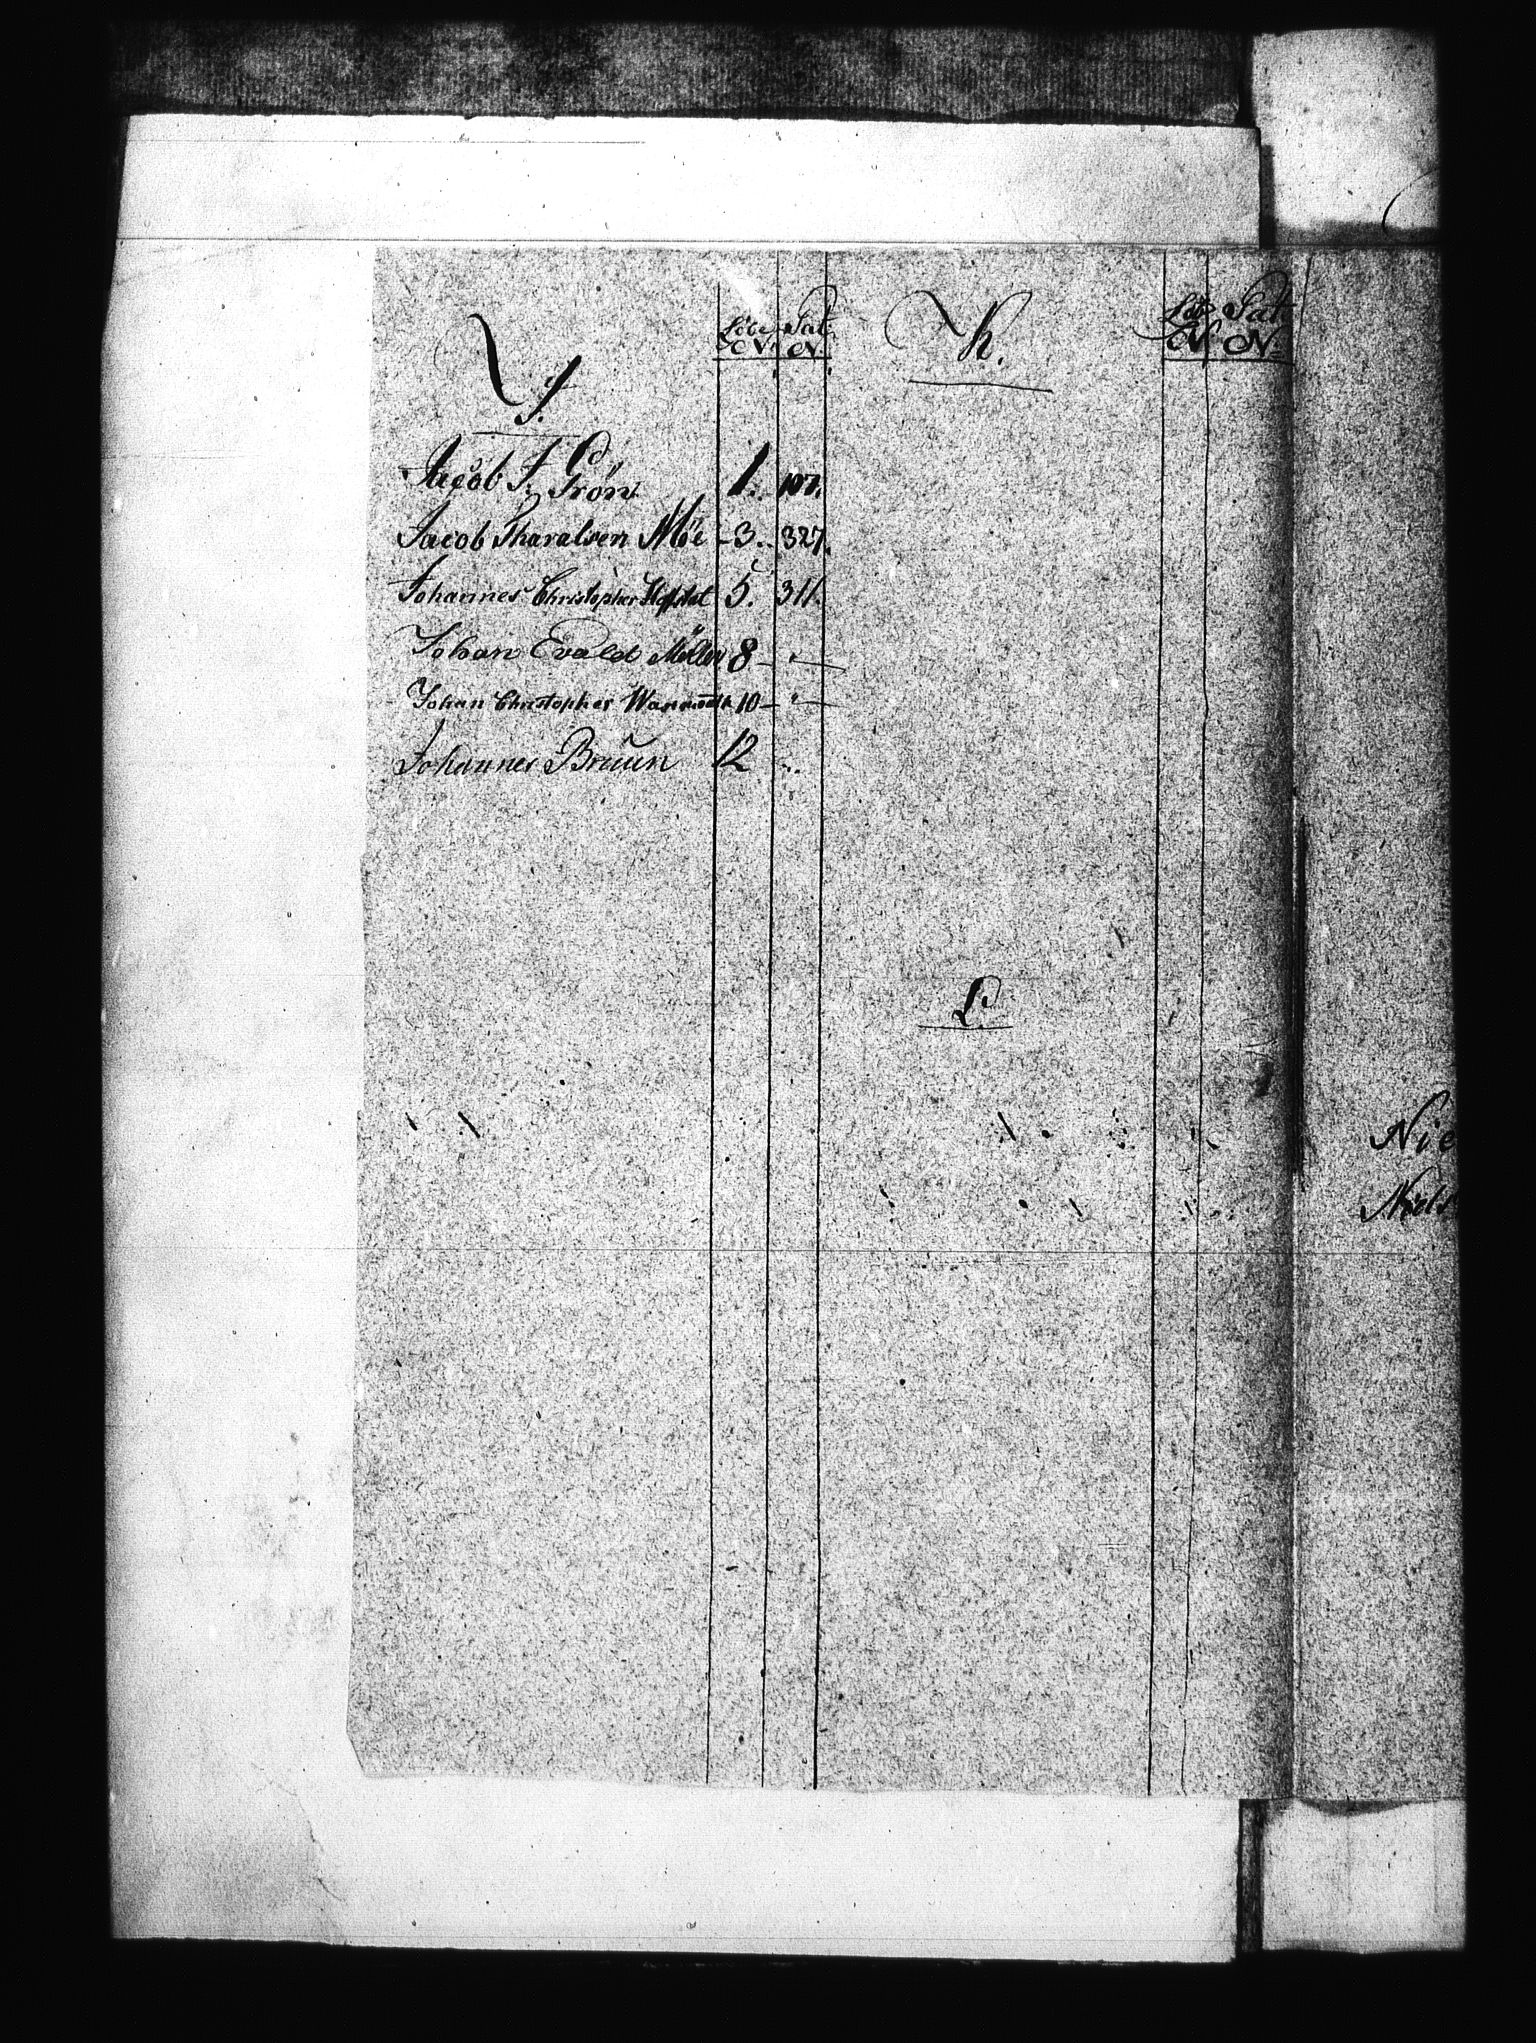 J.
Løbe N. Pat. N.
Jacob F. Grön 1. 107.
Jacob Tharalsen Möe 3. 327.
Johannes Christopher 5. 311.
Johan Evald Möller 8 - "
Johan Christopher 10 - "
Johannes Bruun 12 "
K.
Løb N. Pat N.
L.
Nie
Niels